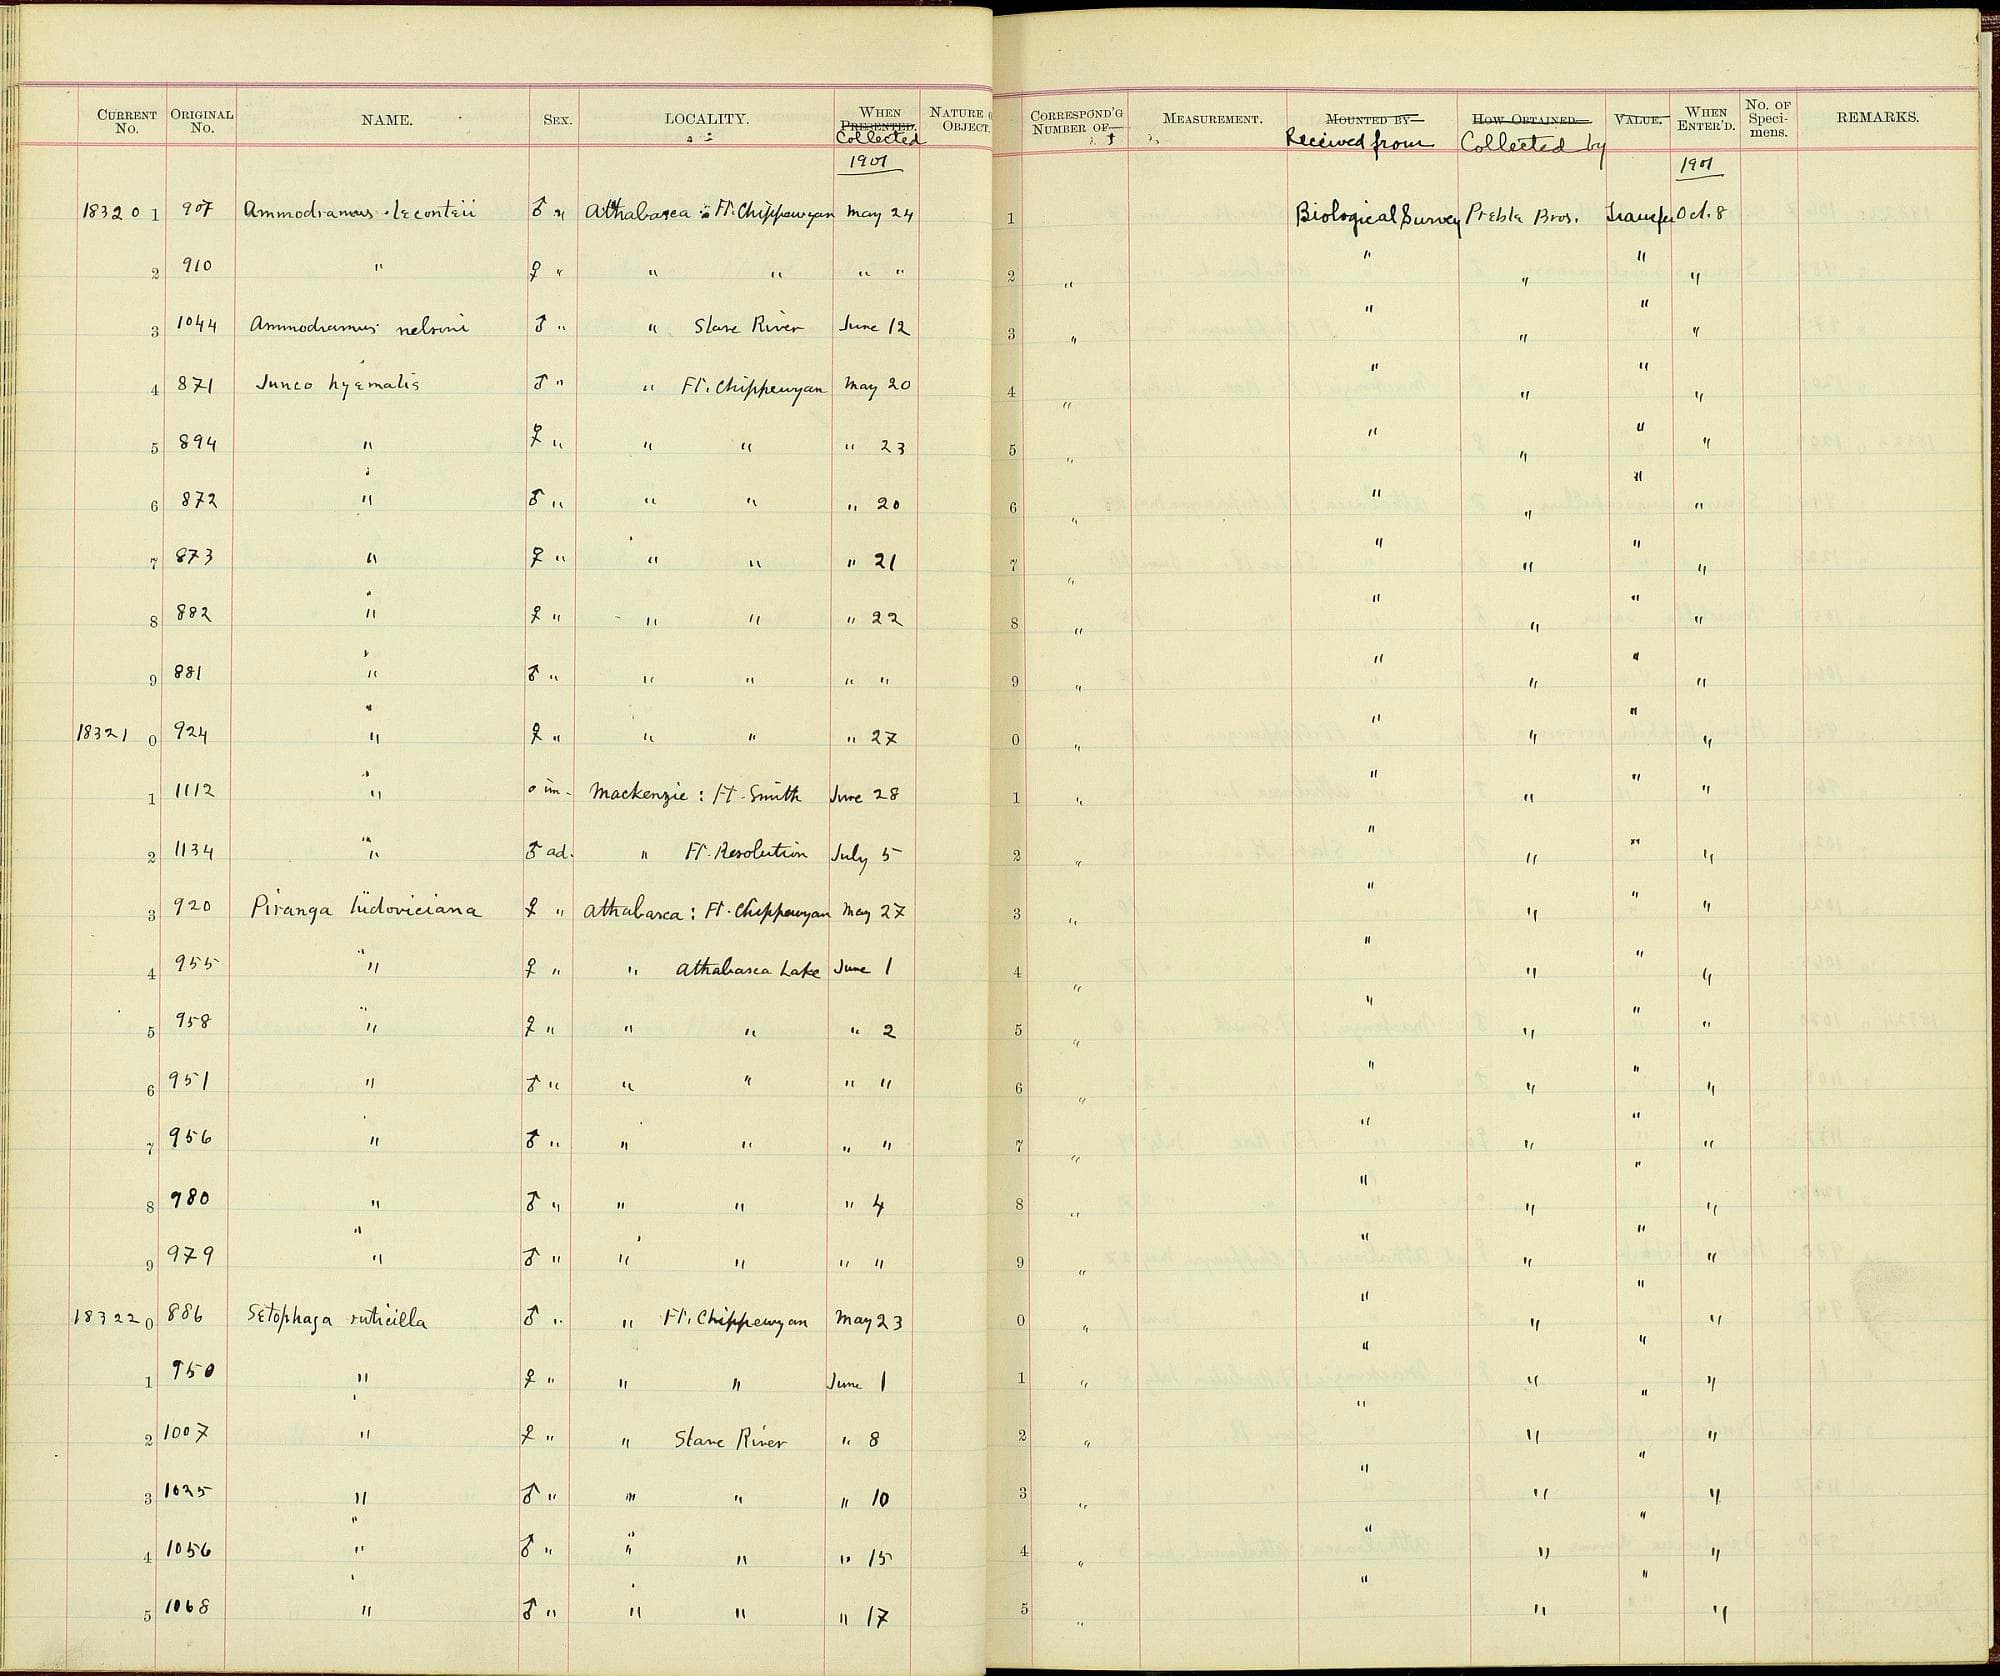 CURRENT No. ORIGINAL No. NAME. SEX. LOCALITY. WHEN PRESENTED. Collected NATURE O OBJECT. CORRESPOND'G NUMBER OF MEASUREMENT. MOUNTED BY Received from HOW OBTAINED. Collected by VALUE. WHEN ENTER'D. No. OF Speci-mens. REMARKS.
1901 1901
18320 1 907 Ammodramus leconteii ♂ " Athabasca : Ft. Chippewyan May 24 1 Biological Survey Preble Bros. Transfer Oct. 8
2 910 " ♀ " " " " " 2 " " " " "
3 1044 Ammodramus nelsoni ♂ " " Slave River June 12 3 " " " " "
4 871 Junco hyemalis ♂ " " Ft. Chippewyan May 20 4 " " " " "
5 894 " ♀ " " " " 23 5 " " " " "
6 872 " ♂ " " " " 20 6 " " " " "
7 873 " ♀ " " " " 21 7 " " " " "
8 882 " ♀ " " " " 22 8 " " " " "
9 881 " ♂ " " " " " 9 " " " " "
18321 0 924 " ♀ " " " " 27 0 " " " " "
1 1112 " o im. Mackenzie : Ft. Smith June 28 1 " " " " "
2 1134 " ♂ ad. " Ft. Resolution July 5 2 " " " " "
3 920 Piranga ludoviciana ♀ " Athabasca : Ft. Chippewyan May 27 3 " " " " "
4 955 " ♀ " " Athabasca Lake June 1 4 " " " " "
5 958 " ♀ " " " " 2 5 " " " " "
6 951 " ♂ " " " " " 6 " " " " "
7 956 " ♂ " " " " " 7 " " " " "
8 980 " ♂ " " " " 4 8 " " " " "
9 979 " ♂ " " " " " 9 " " " " "
18322 0 886 Setophaga ruticilla ♂ " " Ft. Chippewyan May 23 0 " " " " "
1 950 " ♀ " " " June 1 1 " " " " "
2 1007 " ♀ " " Slave River " 8 2 " " " " "
3 1025 " ♂ " " " " 10 3 " " " " "
4 1056 " ♂ " " " " 15 4 " " " " "
5 1068 " ♂ " " " " 17 5 " " " " "